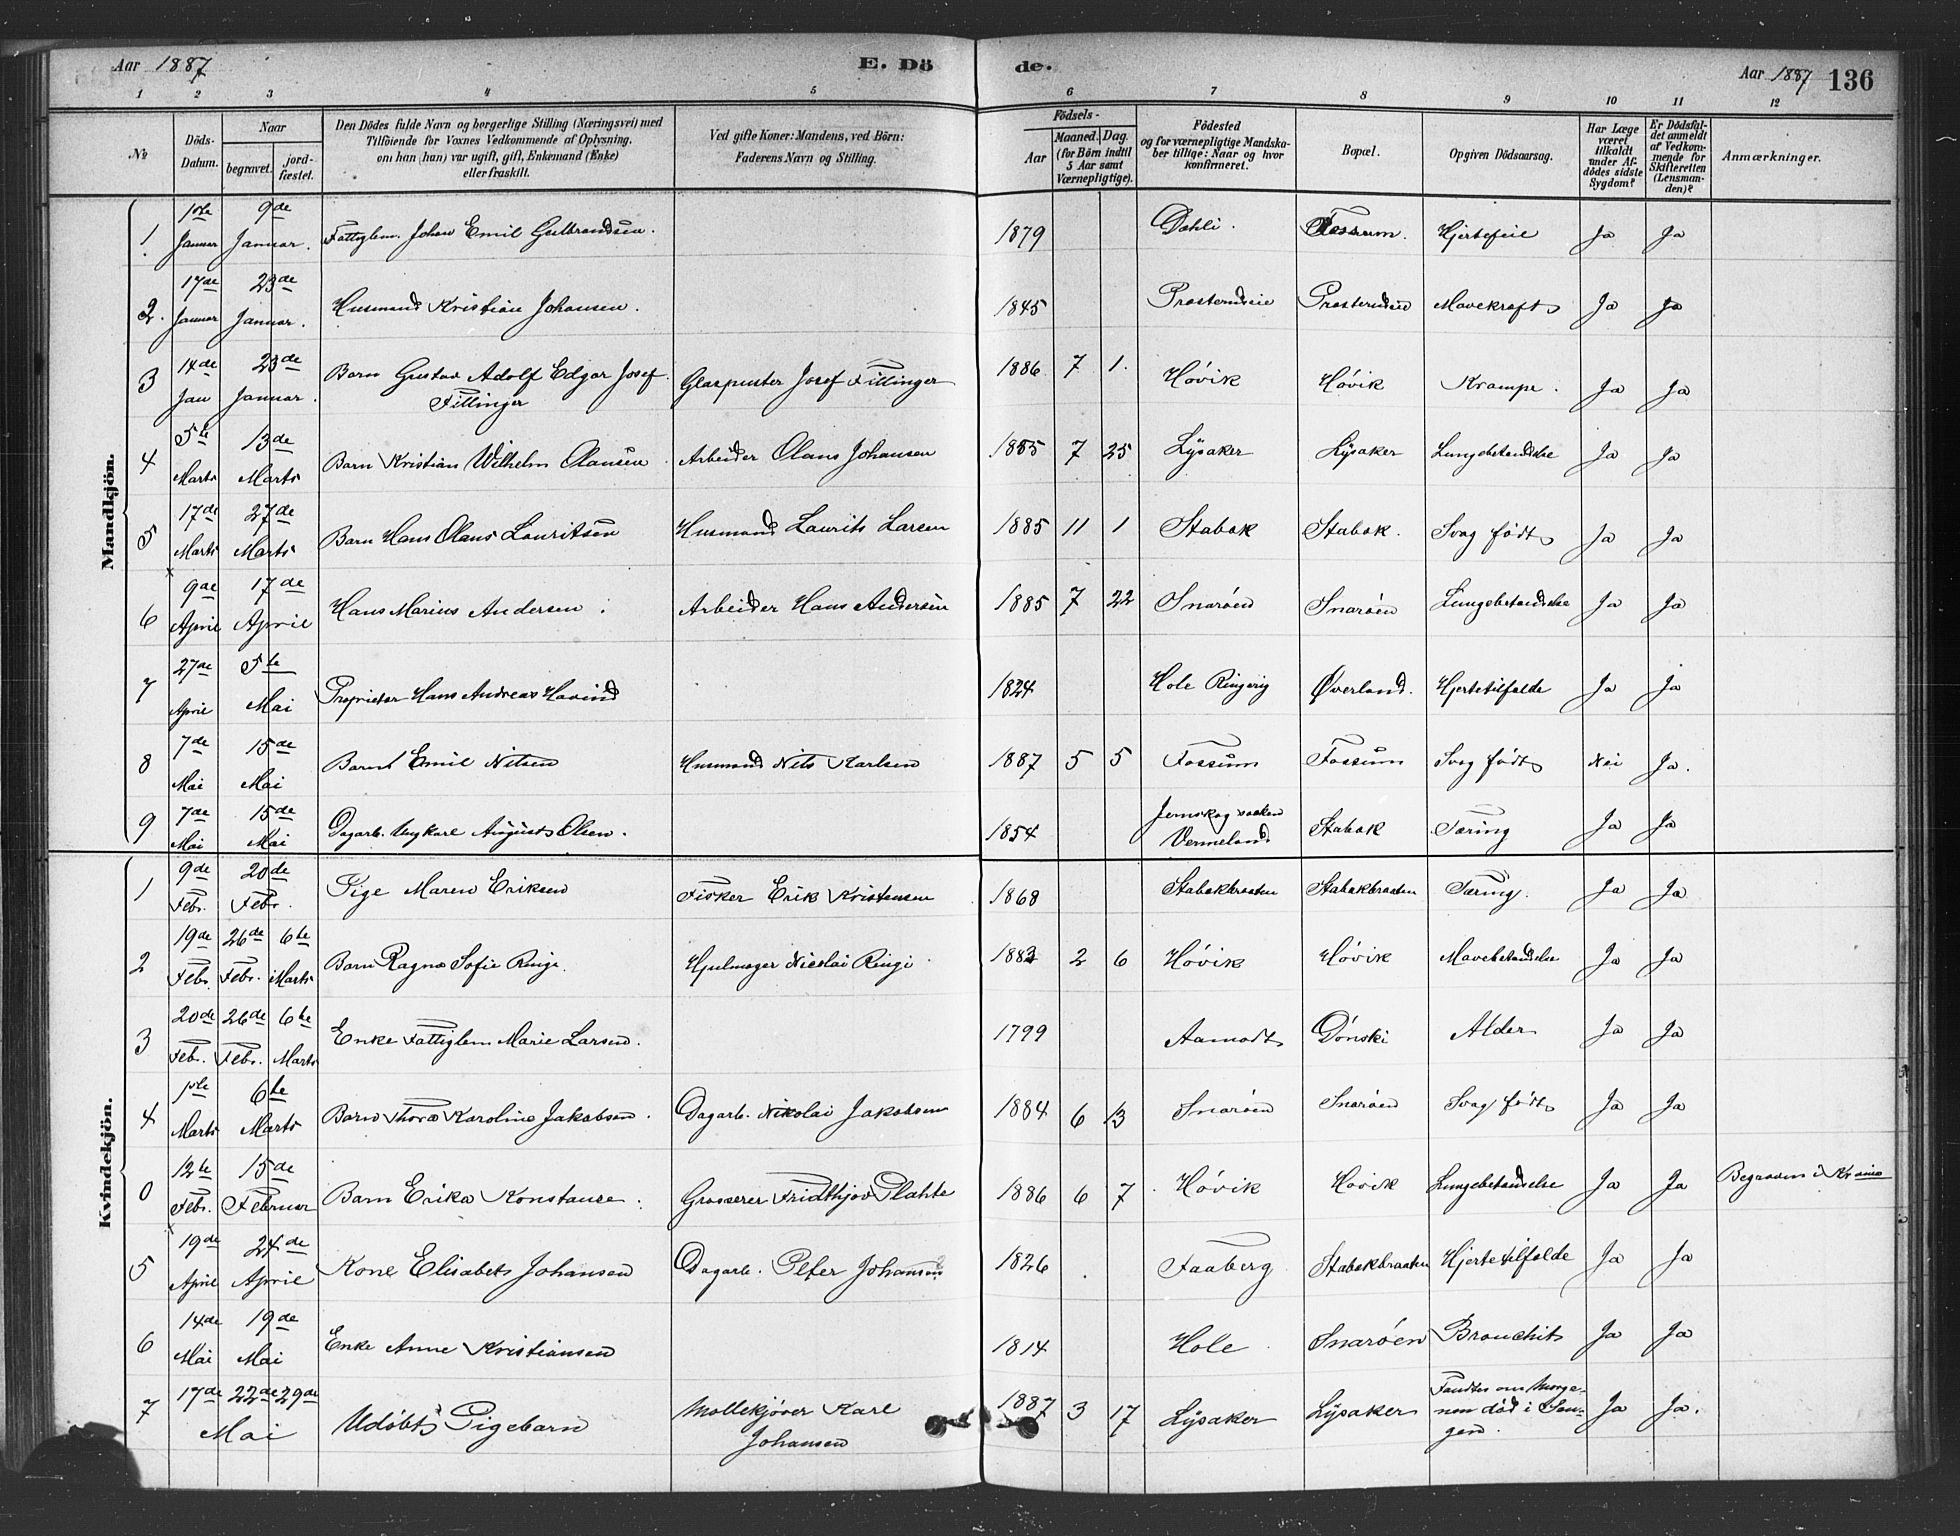 Aar 1887 E. Dö de. Aar 1887 136
1 2 3 4 5 6 7 8 9 10 11 12
№ Döds-Datum. Naar begravet. jord-fæstet. Den Dödes fulde Navn og borgerlige Stilling (Næringsvei) med Tilföiende for Voxnes Vedkommende af Oplysning. om han (hun) var ugift, gift, Enkemand (Enke) eller fraskilt. Ved gifte Koner: Mandens, ved Börn: Faderens Navn og Stilling. Födsels- Aar Maaned. Dag. (for Börn indtil 5 Aar samt Værnepligtige). Födested og for værnepligtige Mandskaber tillige: Naar og hvor konfirmeret. Bopæl. Opgiven Dödsaarsag. Har Læge været tilkaldt under Afdödes sidste Sygdom? Er Dödsfaldet anmeldt af Vedkommende for Skifteretten (Lensmanden)? Anmærkninger.
Mandkjön.
1 1ste Januar 9de Januar. Fattiglem. Johan Emil Gulbrandsen. 1879 Dahli. Fossum. Hjertefeil Ja Ja
2. 17de Januar 23de Januar. Husmand Kristian Johansen. 1845 Prosterudeie Prosterudeie Mavekræft Ja Ja
3 14de Jan 23de Januar. Barn Gustav Adolf Edgar Josef Fillinger Glaspuster Josef Fillinger 1886 7 1. Hövik Hövik Krampe. Ja Ja
4 5te Marts 13de Marts Barn Kristian Wilhelm Olausen Arbeider Olaus Johansen 1885 7 25 Lysaker Lysaker Lungebetændelse Ja Ja
5 17de Marts 27de Marts Barn Hans Olaus Lauritsen Husmand Laurits Larsen 1885 11 1 Stabæk Stabæk. Svag født Ja Ja
6 9de April 17de April Hans Marius Andersen. Arbeider Hans Andersen 1885 7 22 Snaröen Snaröen Lungebetændelse Ja Ja
7 27de April 5te Mai Proprietær Hans Andreas Havind 1824 Hole Ringerig Øverland. Hjertetilfælde Ja Ja
8 7de Mai 15de Mai Barnet Emil Nilsen Husmand Nils Karlsen 1887 5 5 Fossum Fossum Svag født Nei Ja.
9 7de Mai 15de Mai Dagarb. Ungkarl August Olsen. 1854 Jernskog Vermeland Stabæk Tæring Ja Ja
Kvindekjön.
1 9de Febr. 20de Febr. Pige Maren Eriksen Fisker Erik Kristensen 1868 Stabækbraaten Stabækbraaten Tæring. Ja Ja
2 19de Febr. 26de Febr. 6te Marts Barn Ragna Sofie Ringi. Hjulmager Nicolai Ringi 1883 2 6 Hövik Hövik Mavebetændelse Ja Ja
3 20de Febr. 26de Febr. 6te Marts Enke Fattiglem Marie Larsen. 1799 Aamodt Dönski Alder Ja Ja
4 1ste Marts 6te Marts Barn Thora Karoline Jakobsen. Dagarb. Nikolai Jakobsen 1884 6 13 Snaröen Snaröen Svag født Ja Ja
0 12te Febr. 15de Februar Barn Erika Konstance. Grosserer Fridthjov Plahte 1886 6 7 Hövik Hövik Lungebetændelse Ja Ja Begraven i Krania
5 19de April 24de April Kone Elisabet Johansen Dagarb. Peter Johansen 1826 Faaberg Stabækbraaten Hjertetilfælde Ja Ja
6 14de Mai 19de Mai Enke Anne Kristiansen 1814 Hole Snaröen Bronchit Ja Ja
7 17de 22de 29de Mai Udöbt Pigebarn Møllekjører Karl Johansen 1887 3 17 Lysaker Lysaker Fandtes om Morgenen död i Sengen. Ja Ja.